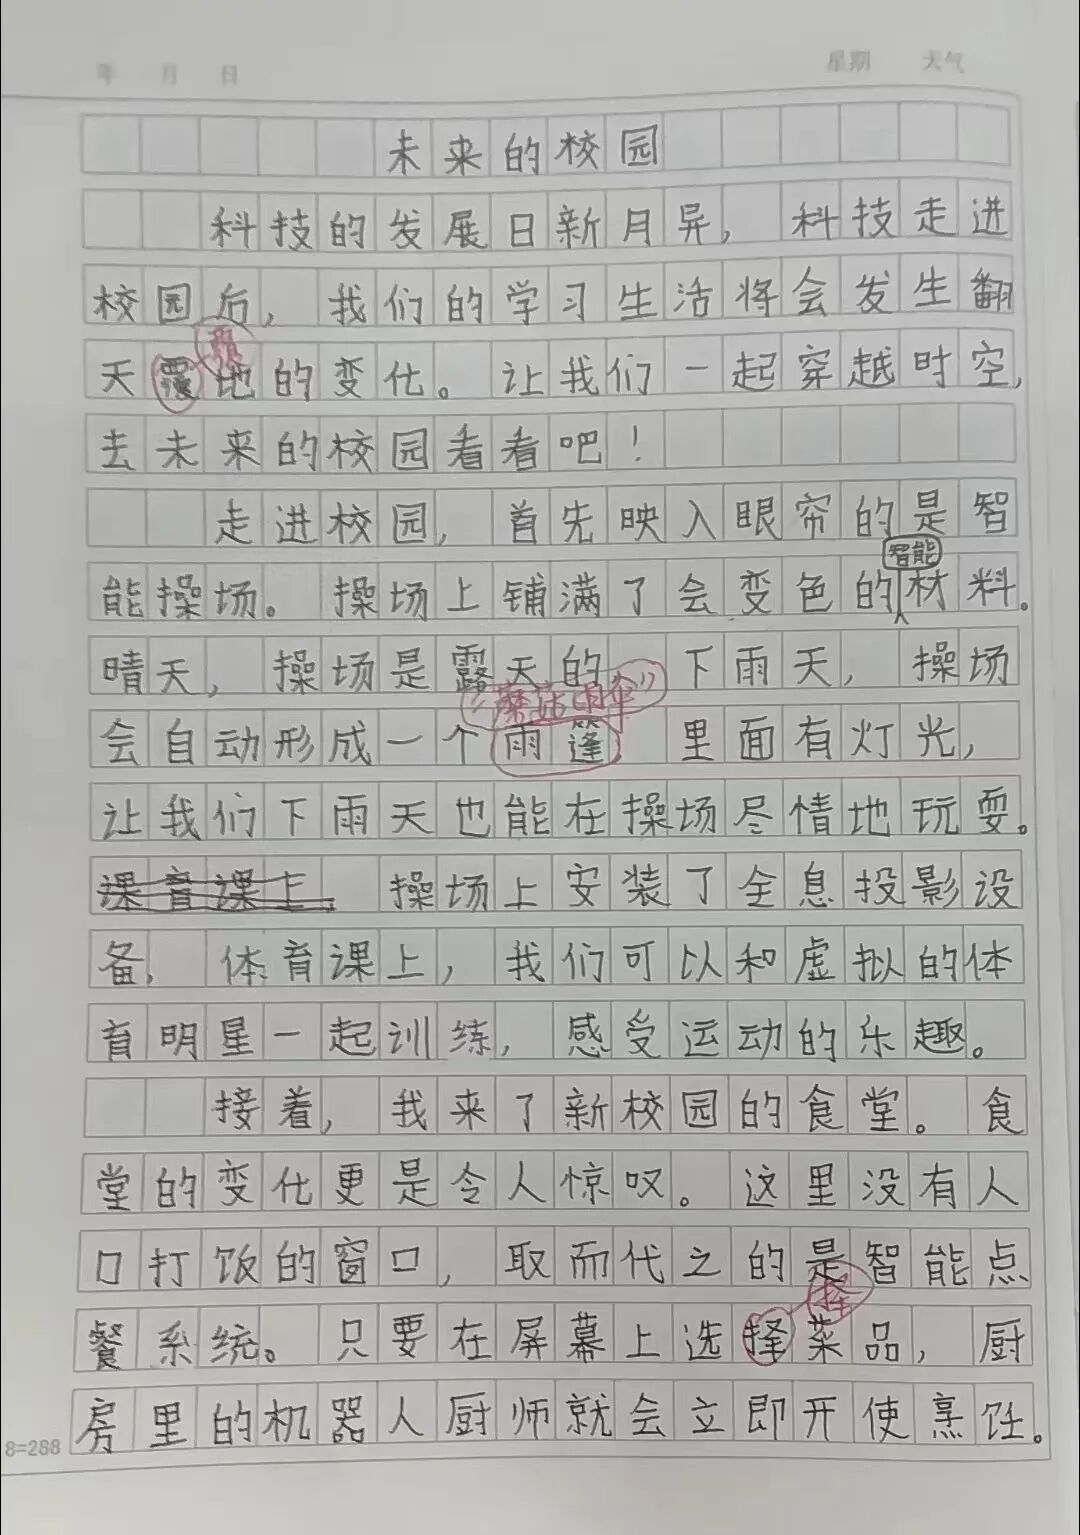 年 月 日 星期 天气
未来的校园
科技的发展日新月异，科技走进
校园后，我们的学习生活将会发生翻
覆
天覆地的变化。让我们一起穿越时空，
去未来的校园看看吧！
走进校园，首先映入眼帘的是智
智能
能操场。操场上铺满了会变色的材料。
晴天，操场是露天的，下雨天，操场
“蘑菇雨伞”
会自动形成一个雨篷，里面有灯光，
让我们下雨天也能在操场尽情地玩耍。
课育课上，操场上安装了全息投影设
备，体育课上，我们可以和虚拟的体
育明星一起训练，感受运动的乐趣。
接着，我来了新校园的食堂。食
堂的变化更是令人惊叹。这里没有人
口打饭的窗口，取而代之的是智能点
择
餐系统。只要在屏幕上选择菜品，厨
房里的机器人厨师就会立即开使烹饪。
8=288